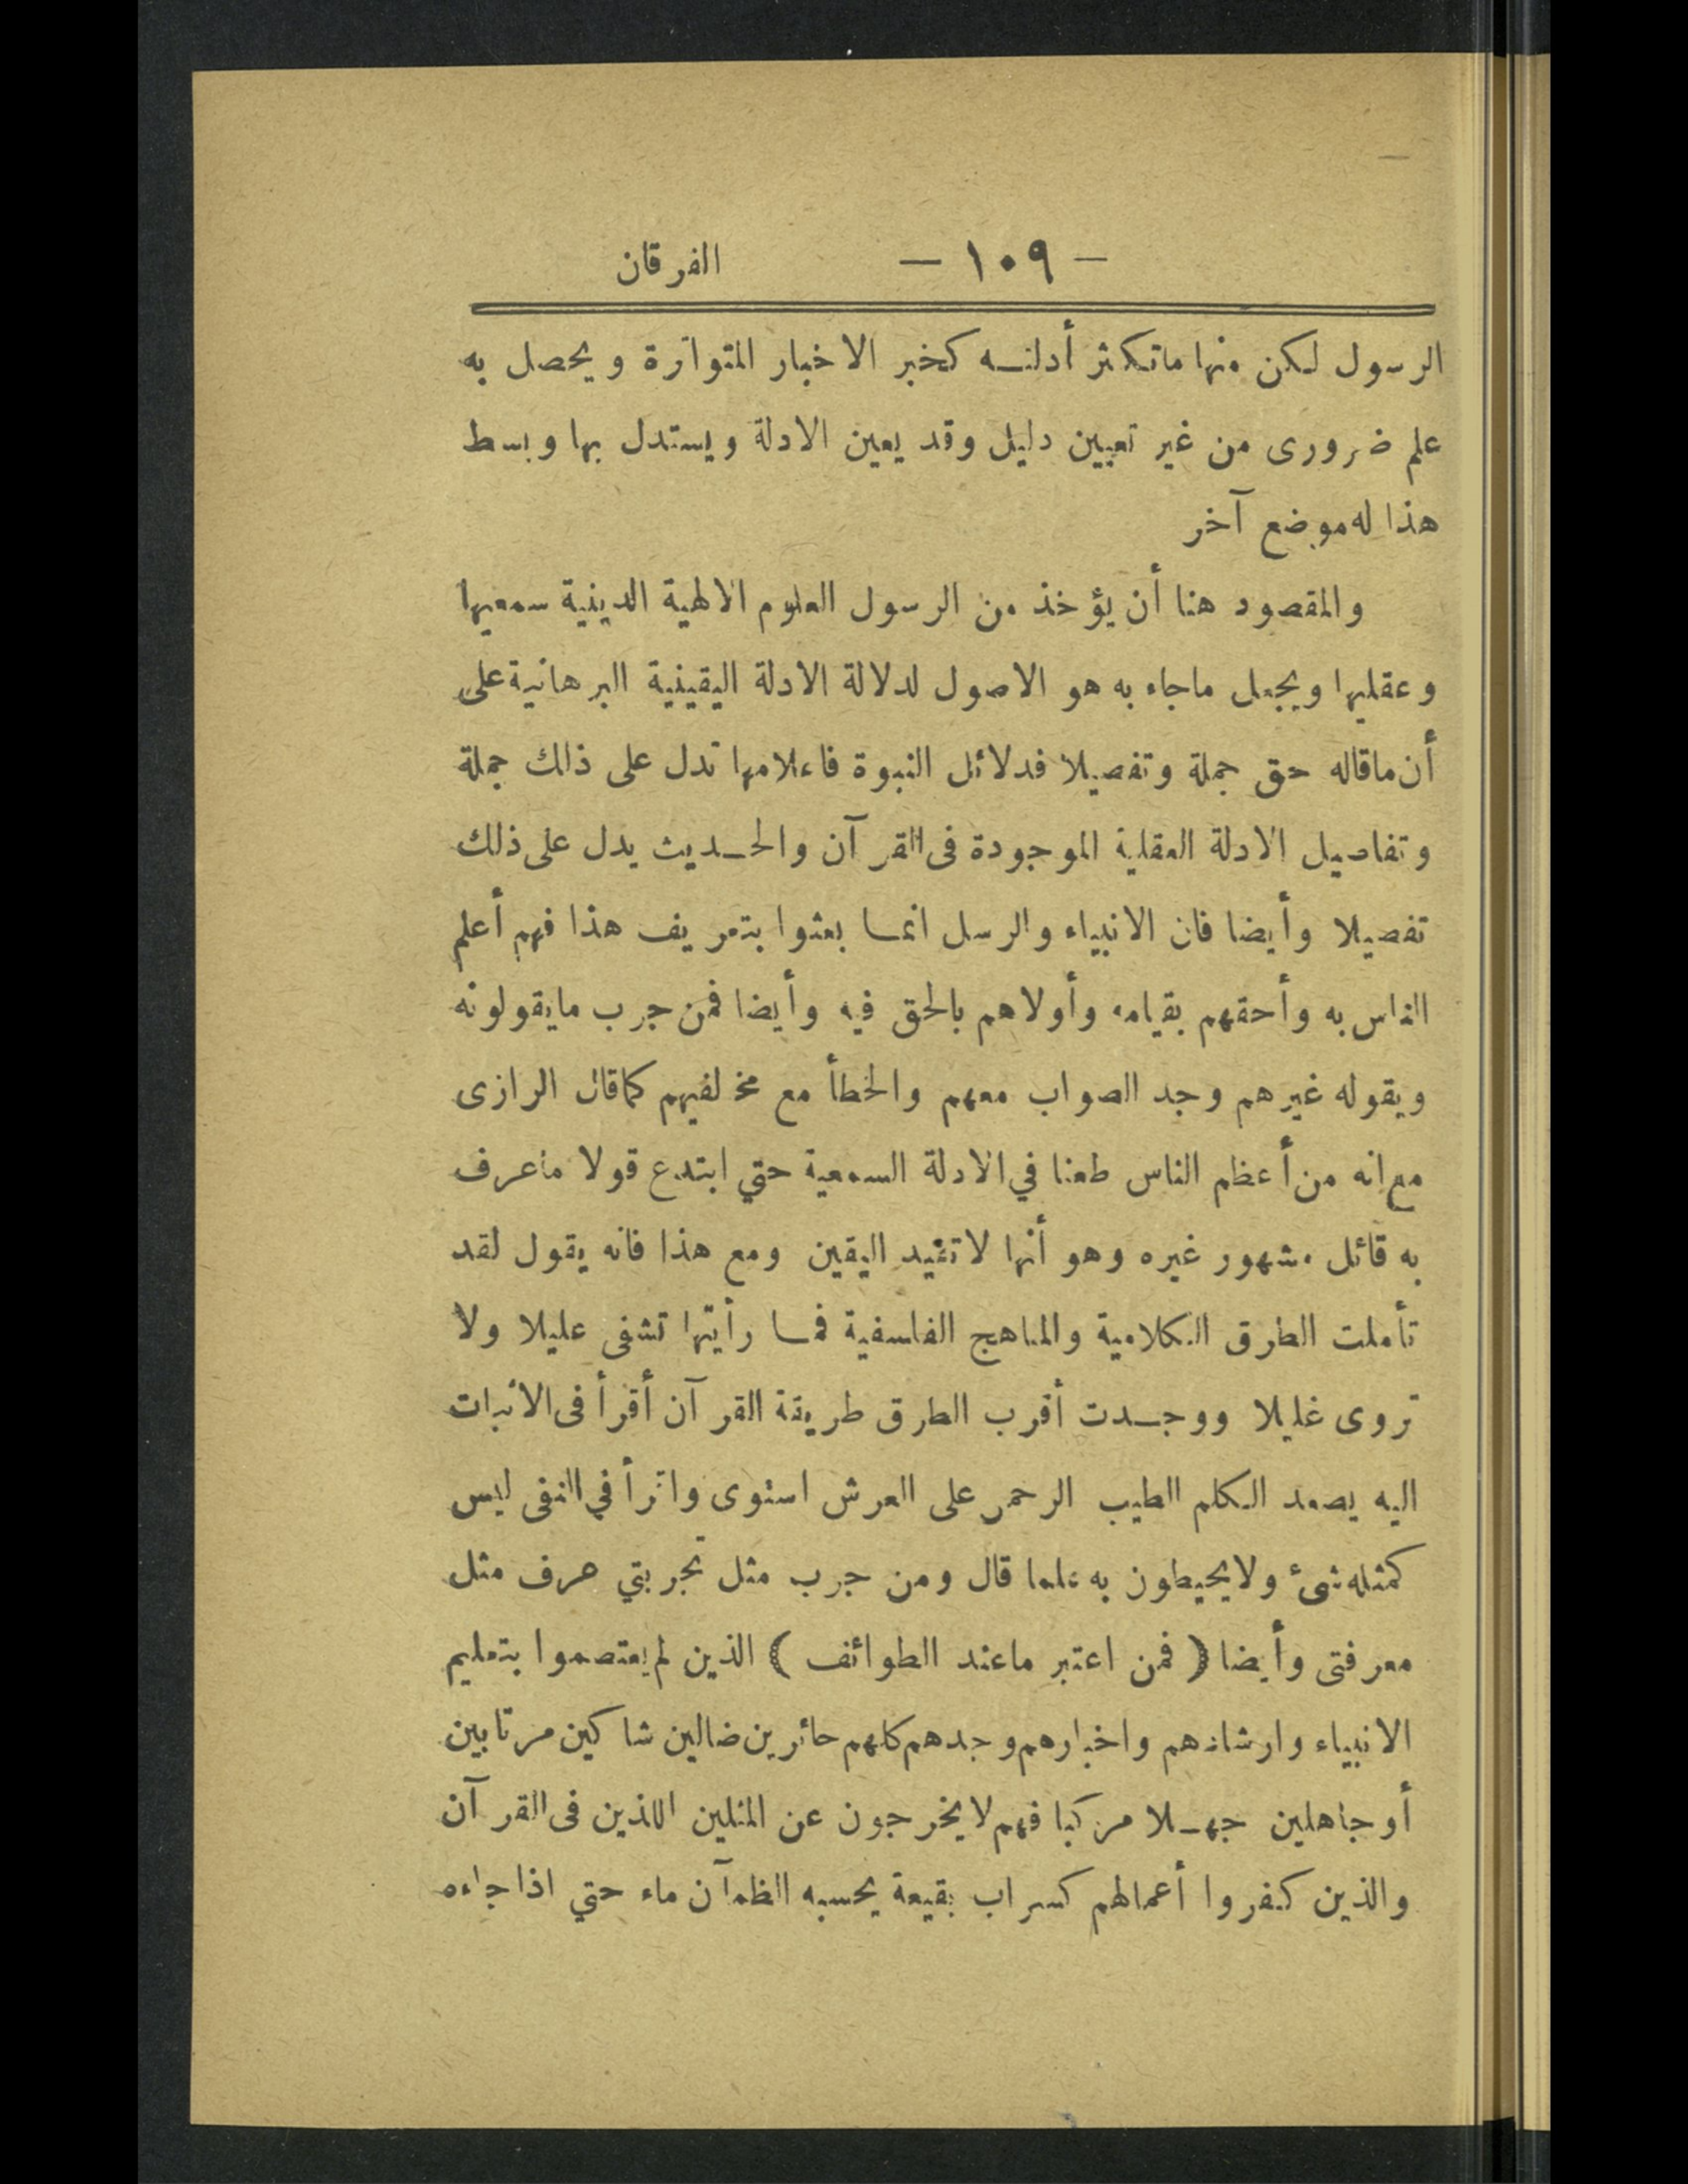 — ١٠٩ — الفرقان
الرسول لكن منها ماتكثر أدلته كخبر الاخبار المتواترة ويحصل به
علم ضرورى من غير تعيين دليل وقد يعين الادلة ويستدل بها وبسط
هذا له موضع آخر
والمقصود هنا أن يؤخذ من الرسول العلوم الالهية الدينية سمعيها
وعقليها ويجعل ماجاء به هو الاصول لدلالة الادلة اليقينية البرهانية على
أن ماقاله حق جملة وتفصيلا فدلائل النبوة فاعلامها تدل على ذلك جملة
وتفاصيل الادلة العقلية الموجودة فى القرآن والحديث يدل على ذلك
تفصيلا وأيضا فان الانبياء والرسل انما بعثوا بتعريف هذا فهم أعلم
الناس به وأحقهم بقيامه وأولاهم بالحق فيه وأيضا فمن جرب مايقولونه
ويقوله غيرهم وجد الصواب معهم والخطأ مع مخالفيهم كماقال الرازى
مع انه من أعظم الناس طعنا في الادلة السمعية حتي ابتدع قولا ماعرف
به قائل مشهور غيره وهو أنها لاتفيد اليقين ومع هذا فانه يقول لقد
تأملت الطرق الكلامية والمناهج الفلسفية فما رأيتها تشفى عليلا ولا
تروى غليلا ووجدت أقرب الطرق طريقة القرآن أقرأ فى الاثبات
اليه يصعد الكلم الطيب الرحمن على العرش استوى واقرأ في النفى ليس
كمثله شئ ولايحيطون به علما قال ومن جرب مثل تجربتي عرف مثل
معرفتى وأيضا ( فمن اعتبر ماعند الطوائف ) الذين لم يعتصموا بتعليم
الانبياء وارشادهم واخبارهم وجدهم كلهم حائرين ضالين شاكين مرتابين
أو جاهلين جهلا مركبا فهم لايخرجون عن المثلين اللذين فى القرآن
والذين كفروا أعمالهم كسراب بقيعة يحسبه الظمآن ماء حتي اذا جاءه